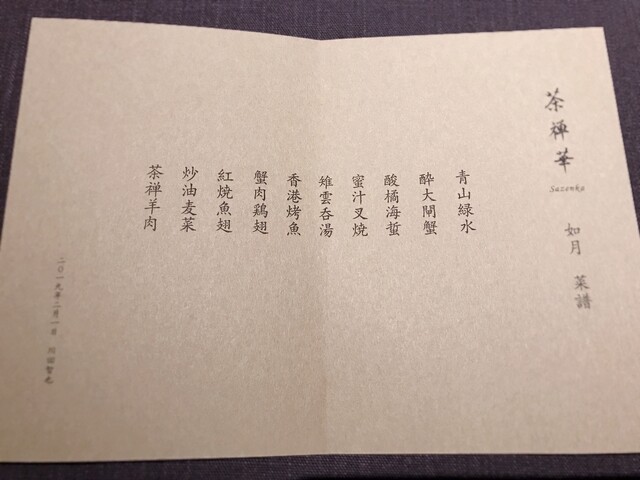 茶禅華
Sazenka
如月 菜譜
青山緑水
酔大閘蟹
酸橘海蜇
蜜汁叉焼
雉雲呑湯
香港烤魚
蟹肉鶏翅
紅焼魚翅
炒油麦菜
茶禅羊肉
二〇一九年二月一日 川田智也